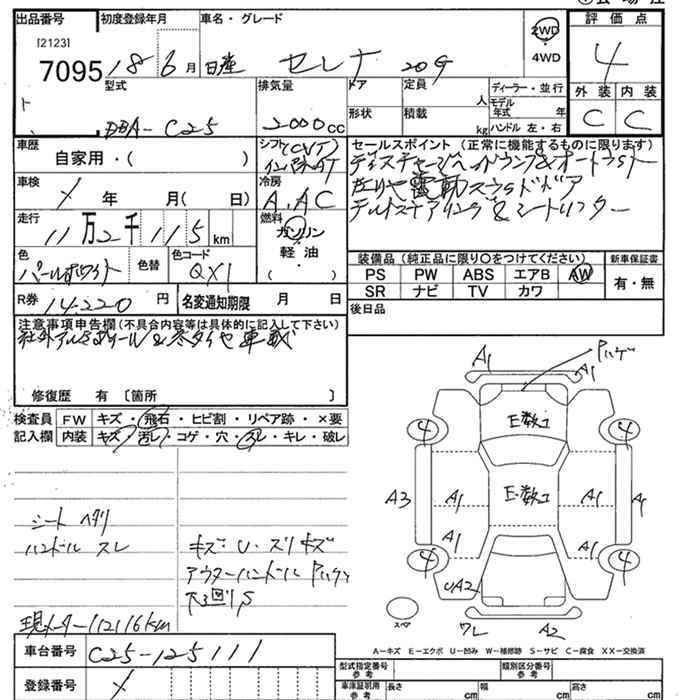 出品番号 初度登録年月 車名・グレード 2WD 評価点
[2123]
7095 18 6月 日産 セレナ 20G ・4WD 4
型式 排気量 ドア 定員 人 ディーラー・並行 外装 内装
モデル年式 年
DBA-C25 2000cc 形状 積載 kg ハンドル 左・右 C C
車歴 シフト(CVT) セールスポイント (正常に機能するものに限ります)
自家用・( ) インパネAT ディスチャージヘッドランプ&オートライト
車検 冷房 左リヤ電動スライドドア
× 年 月( 日) A.AC チルトステアリング&シートリフター
走行 燃料
11万2千115km ガソリン
軽油 装備品 (純正品に限り○をつけてください) 新車保証書
色 色替 色コード ( ) PS PW ABS エアB AW 有・無
パールホワイト QX1 SR ナビ TV カワ
R券 14,220円 名変通知期限 月 日 後日品
注意事項申告欄 (不具合内容等は具体的に記入して下さい)
社外アルミホイール&冬タイヤ車載
修復歴 有 〔箇所 〕
検査員 FW キズ・飛石・ヒビ割・リペア跡・×要
記入欄 内装 キズ・汚レ・コゲ・穴・スレ・キレ・破レ
A1 A1 ハゲ
4 E数コ 4
A3 A1 E・数コ A1 A
A1 A1
4 UA2 4
スペア ワレ A2
シート ヘタリ
ハンドル スレ キズ・U・スリキズ
アウターハンドル ハゲ
下廻りS
現メーター112116km
A-キズ E-エクボ U-凹み W-補修跡 S-サビ C-腐食 XX-交換済
車台番号 C25-125111 型式指定番号 参考 類別区分番号 参考
登録番号 × 車庫証明用 参考 長さ cm 幅 cm 高さ cm